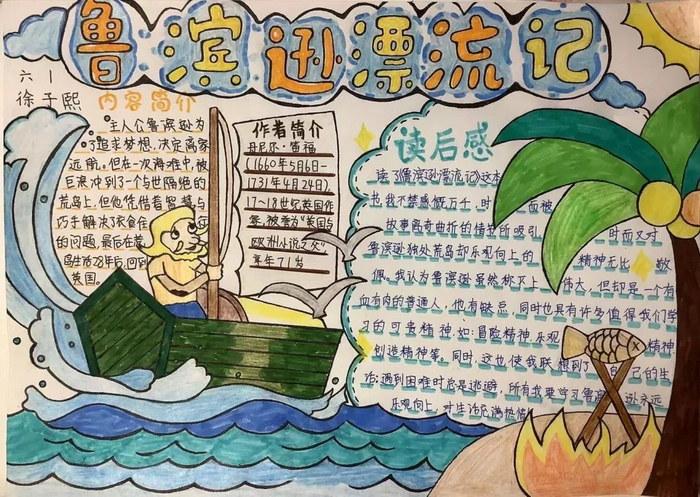 鲁滨逊漂流记
六 1
徐子熙
内容简介
主人公鲁滨逊为
了追求梦想,决定离家
远航。但在一次海难中,被
巨浪冲到了一个与世隔绝的
荒岛上,但他凭借着智慧与
巧手解决了衣食住行
的问题,最后在荒
岛生活28年后,回到
英国。
作者简介
丹尼尔·笛福
(1660年5月6日-
1731年4月24日),
17~18世纪英国作
家,被誉为“英国与
欧洲小说之父”
享年71岁
读后感
读了《鲁滨逊漂流记》这本
书,我不禁感慨万千,时而被
故事离奇曲折的情节所吸引 时而又对
鲁滨逊独处荒岛却乐观向上的 精神无比 敬
佩。我认为鲁滨逊虽然称不上 伟大,但却是一个有
血有肉的普通人,他有缺点,同时也具有许多值得我们学
习的可贵精神,如:冒险精神,乐观 精神,
创造精神等。同时,这也使我联想到了自己的生
活:遇到困难时总是逃避,所有我要学习鲁滨逊永远
乐观向上,对生活充满热情